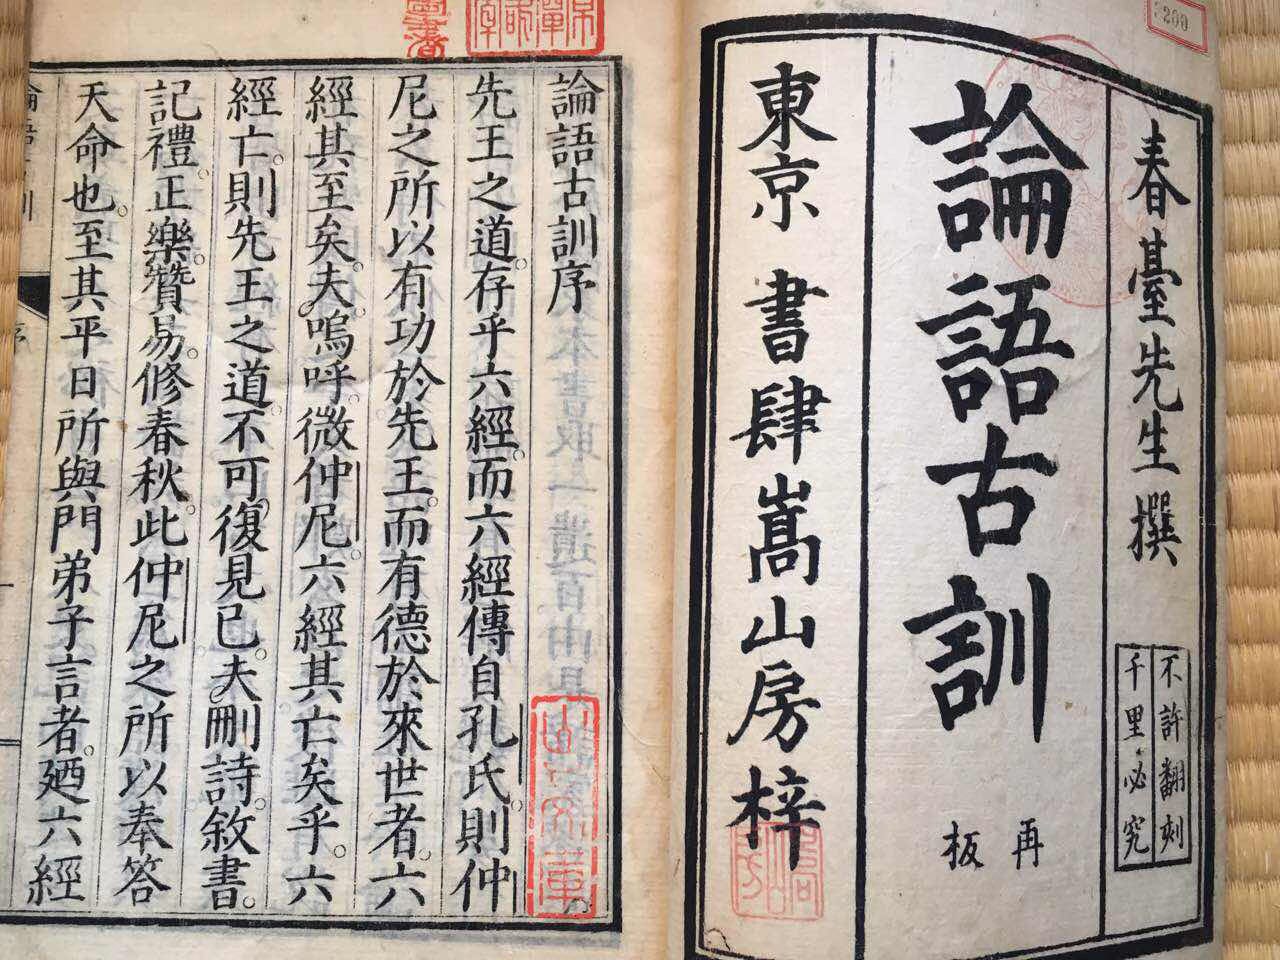 春臺先生撰
不許翻刻
千里必究
論語古訓
再
板
東京 書肆嵩山房梓
3200
論語古訓序
先王之道。存乎六經。而六經傳自孔氏。則仲
尼之所以有功於先王。而有德於來世者。六
經其至矣。夫。嗚呼。微仲尼。六經其亡矣乎。六
經亡。則先王之道。不可復見已。夫刪詩。敘書。
記禮。正樂。贊易。修春秋。此仲尼之所以奉答
天命也。至其平日所與門弟子言者。廼六經